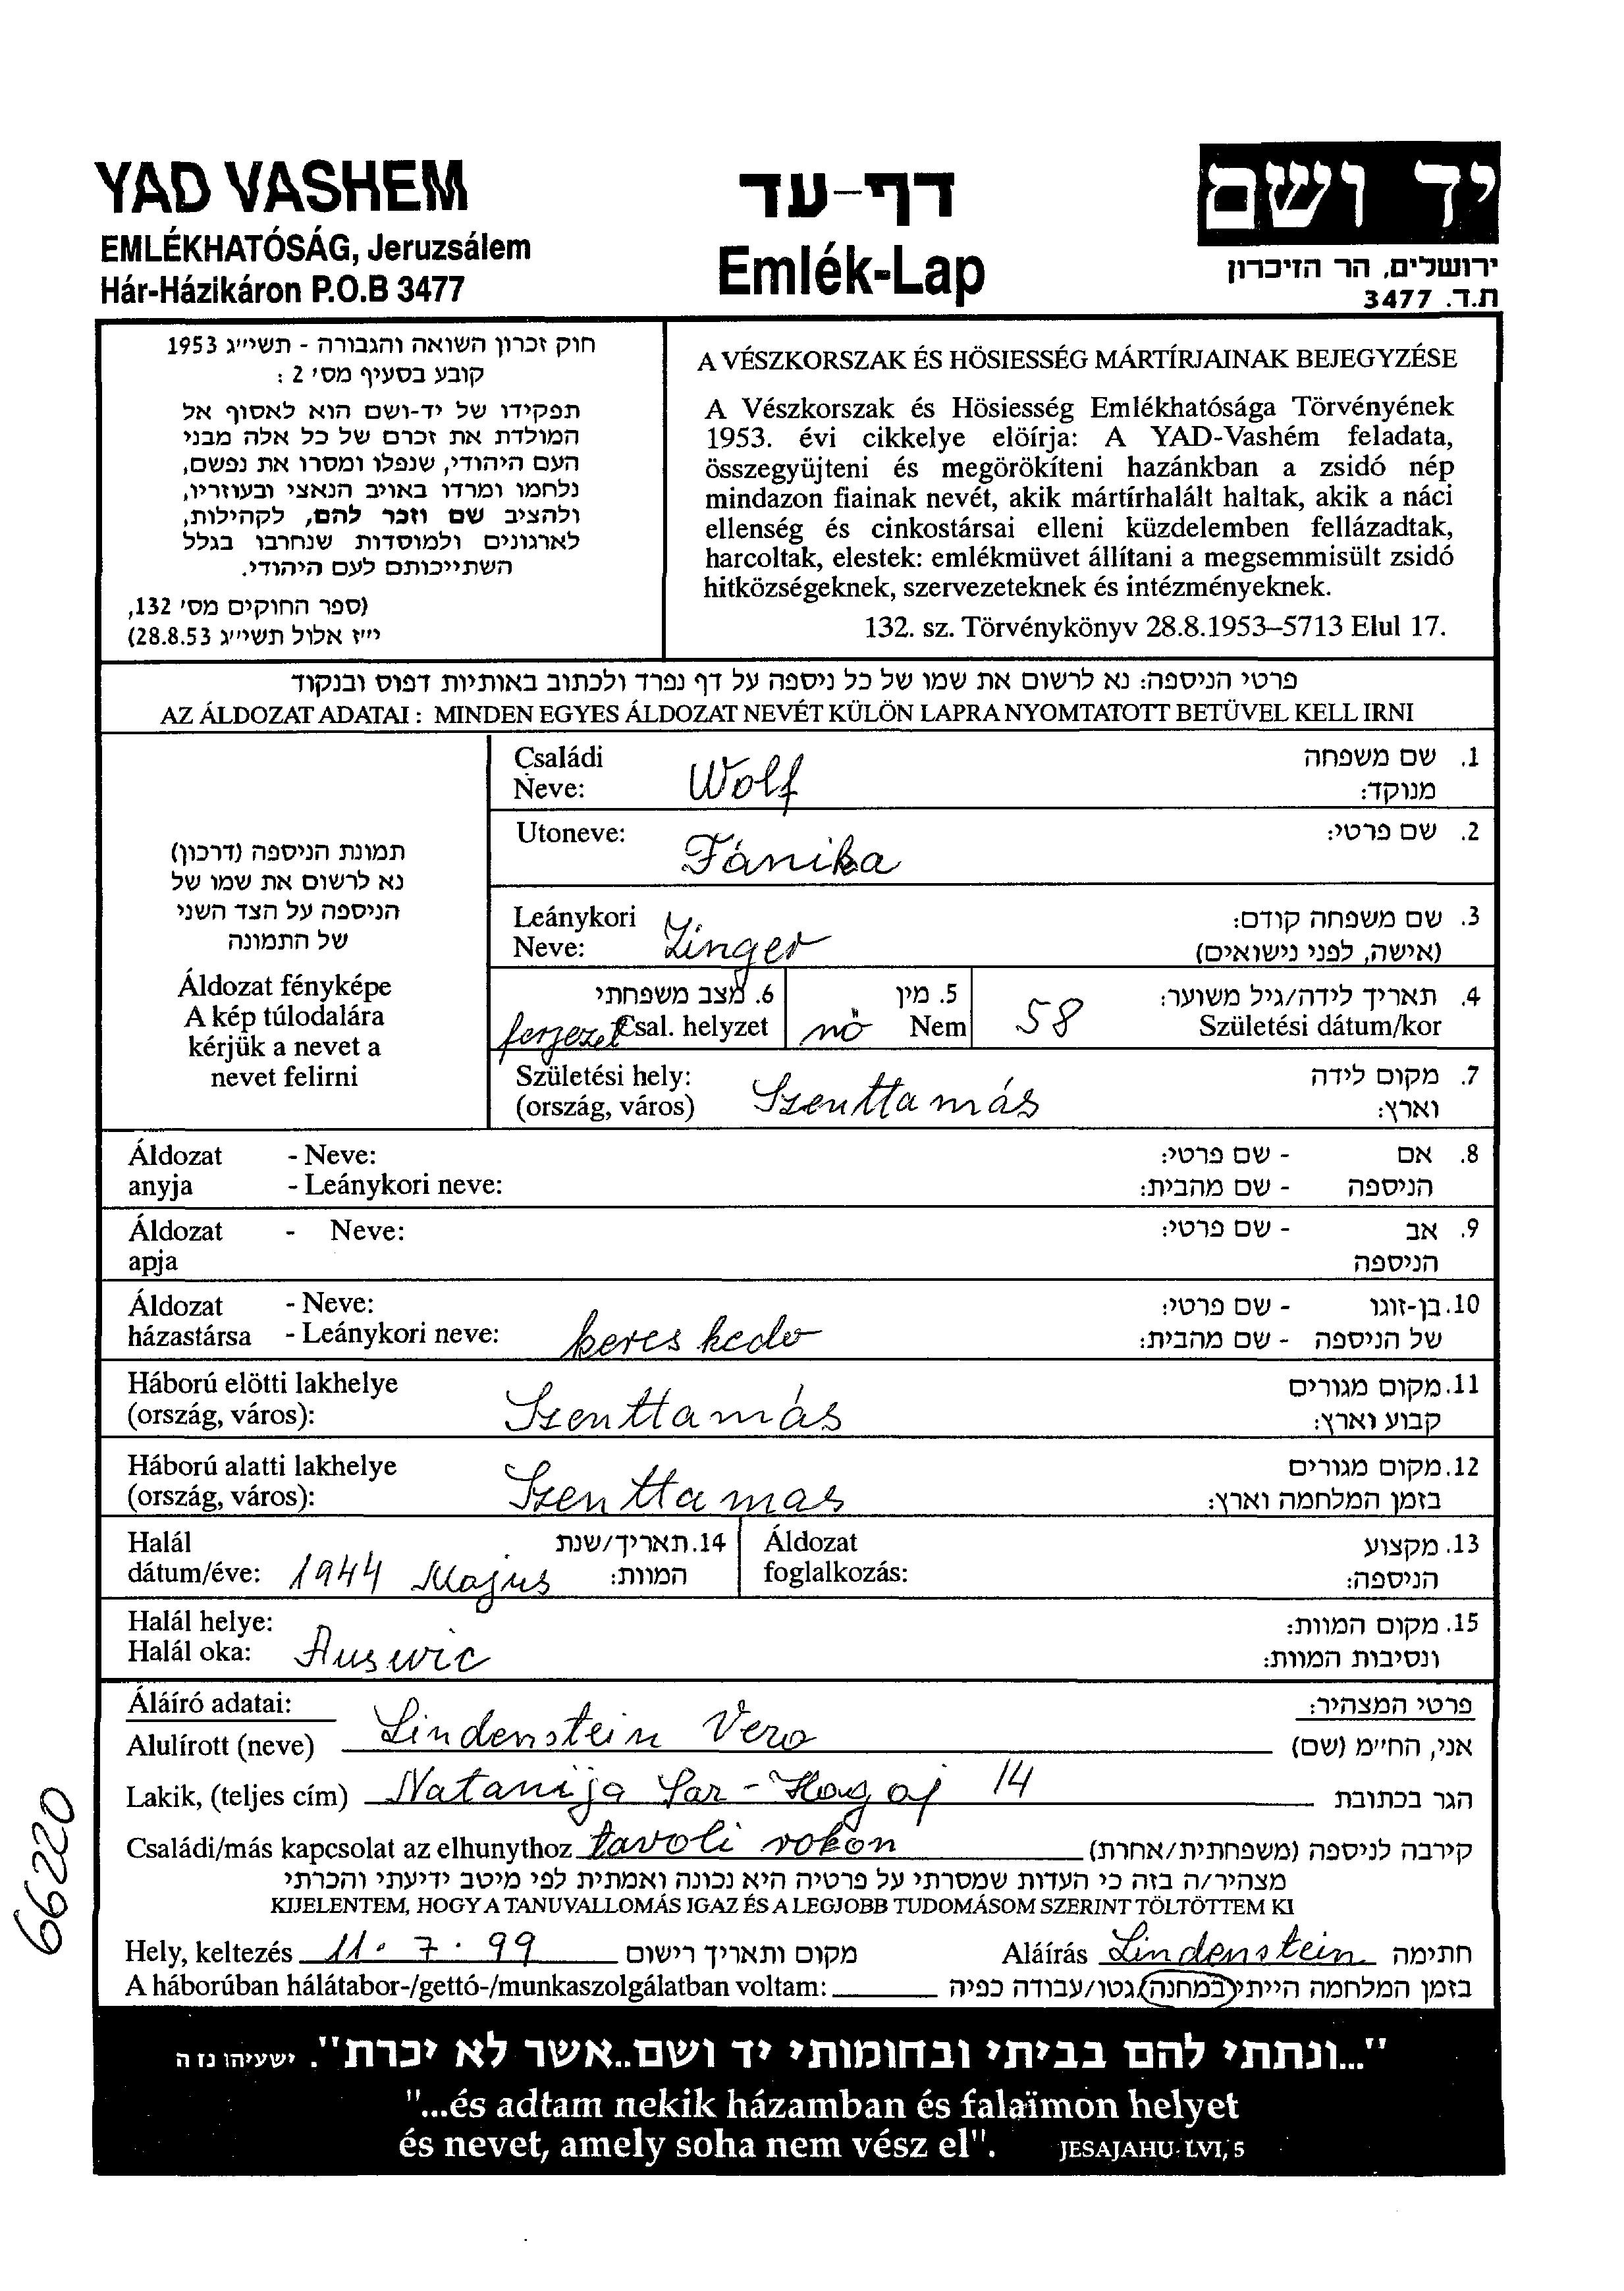 YAD VASHEM
EMLÉKHATÓSÁG, Jeruzsálem
Hár-Házikáron P.O.B 3477
דף-עד
Emlék-Lap
יד ושם
ירושלים, הר הזיכרון
ת.ד. 3477
חוק זכרון השואה והגבורה - תשי״ג 1953
קובע בסעיף מס' 2 :
תפקידו של יד-ושם הוא לאסוף אל
המולדת את זכרם של כל אלה מבני
העם היהודי, שנפלו ומסרו את נפשם,
נלחמו ומרדו באויב הנאצי ובעוזריו,
ולהציב שם וזכר להם, לקהילות,
לארגונים ולמוסדות שנחרבו בגלל
השתייכותם לעם היהודי.
(ספר החוקים מס' 132,
י״ז אלול תשי״ג 28.8.53)
A VÉSZKORSZAK ÉS HÖSIESSÉG MÁRTÍRJAINAK BEJEGYZÉSE
A Vészkorszak és Hösiesség Emlékhatósága Törvényének
1953. évi cikkelye elöírja: A YAD-Vashém feladata,
összegyüjteni és megörökíteni hazánkban a zsidó nép
mindazon fiainak nevét, akik mártírhalált haltak, akik a náci
ellenség és cinkostársai elleni küzdelemben fellázadtak,
harcoltak, elestek: emlékmüvet állítani a megsemmisült zsidó
hitközségeknek, szervezeteknek és intézményeknek.
132. sz. Törvénykönyv 28.8.1953–5713 Elul 17.
פרטי הניספה: נא לרשום את שמו של כל ניספה על דף נפרד ולכתוב באותיות דפוס ובנקוד
AZ ÁLDOZAT ADATAI : MINDEN EGYES ÁLDOZAT NEVÉT KÜLÖN LAPRA NYOMTATOTT BETÜVEL KELL IRNI
תמונת הניספה (דרכון)
נא לרשום את שמו של
הניספה על הצד השני
של התמונה
Áldozat fényképe
A kép túlodalára
kérjük a nevet a
nevet felirni
Családi Neve: Wolf 1. שם משפחה מנוקד:
Utoneve: Fánika 2. שם פרטי:
Leánykori Neve: Zinger 3. שם משפחה קודם: (אישה, לפני נישואים)
6. מצב משפחתי Csal. helyzet ferjezet
5. מין Nem nő
4. תאריך לידה/גיל משוער: Születési dátum/kor 58
Születési hely: (ország, város) Szenttamás 7. מקום לידה וארץ:
Áldozat - Neve: - שם פרטי: 8. אם
anyja - Leánykori neve: - שם מהבית: הניספה
Áldozat - Neve: - שם פרטי: 9. אב
apja הניספה
Áldozat - Neve: - שם פרטי: 10. בן-זוגו
házastársa - Leánykori neve: kereskedo - שם מהבית: של הניספה
Háború elötti lakhelye (ország, város): Szenttamás 11. מקום מגורים קבוע וארץ:
Háború alatti lakhelye (ország, város): Szenttamas 12. מקום מגורים בזמן המלחמה וארץ:
Halál dátum/éve: 1944 Majus 14. תאריך/שנת המוות:
Áldozat foglalkozás: 13. מקצוע הניספה:
Halál helye: 15. מקום המוות:
Halál oka: Auswic ונסיבות המוות:
Áláíró adatai: פרטי המצהיר:
Alulírott (neve) Lindenstein Vera אני, החי״מ (שם)
Lakik, (teljes cím) Natanija Sar-Hagaj 14 הגר בכתובת
Családi/más kapcsolat az elhunythoz tavoli rokon קירבה לניספה (משפחתית/אחרת)
מצהיר/ה בזה כי העדות שמסרתי על פרטיה היא נכונה ואמתית לפי מיטב ידיעתי והכרתי
KIJELENTEM, HOGY A TANUVALLOMÁS IGAZ ÉS A LEGJOBB TUDOMÁSOM SZERINT TÖLTÖTTEM KI
Hely, keltezés 11. 7. 99 מקום ותאריך רישום Aláírás Lindenstein חתימה
A háborúban hálátabor-/gettó-/munkaszolgálatban voltam: בזמן המלחמה הייתי במחנה/גטו/עבודה כפיה
"...ונתתי להם בביתי ובחומותי יד ושם..אשר לא יכרת". ישעיהו נז ה
"...és adtam nekik házamban és falaïmon helyet
és nevet, amely soha nem vész el". JESAJAHU LVI, 5
66220